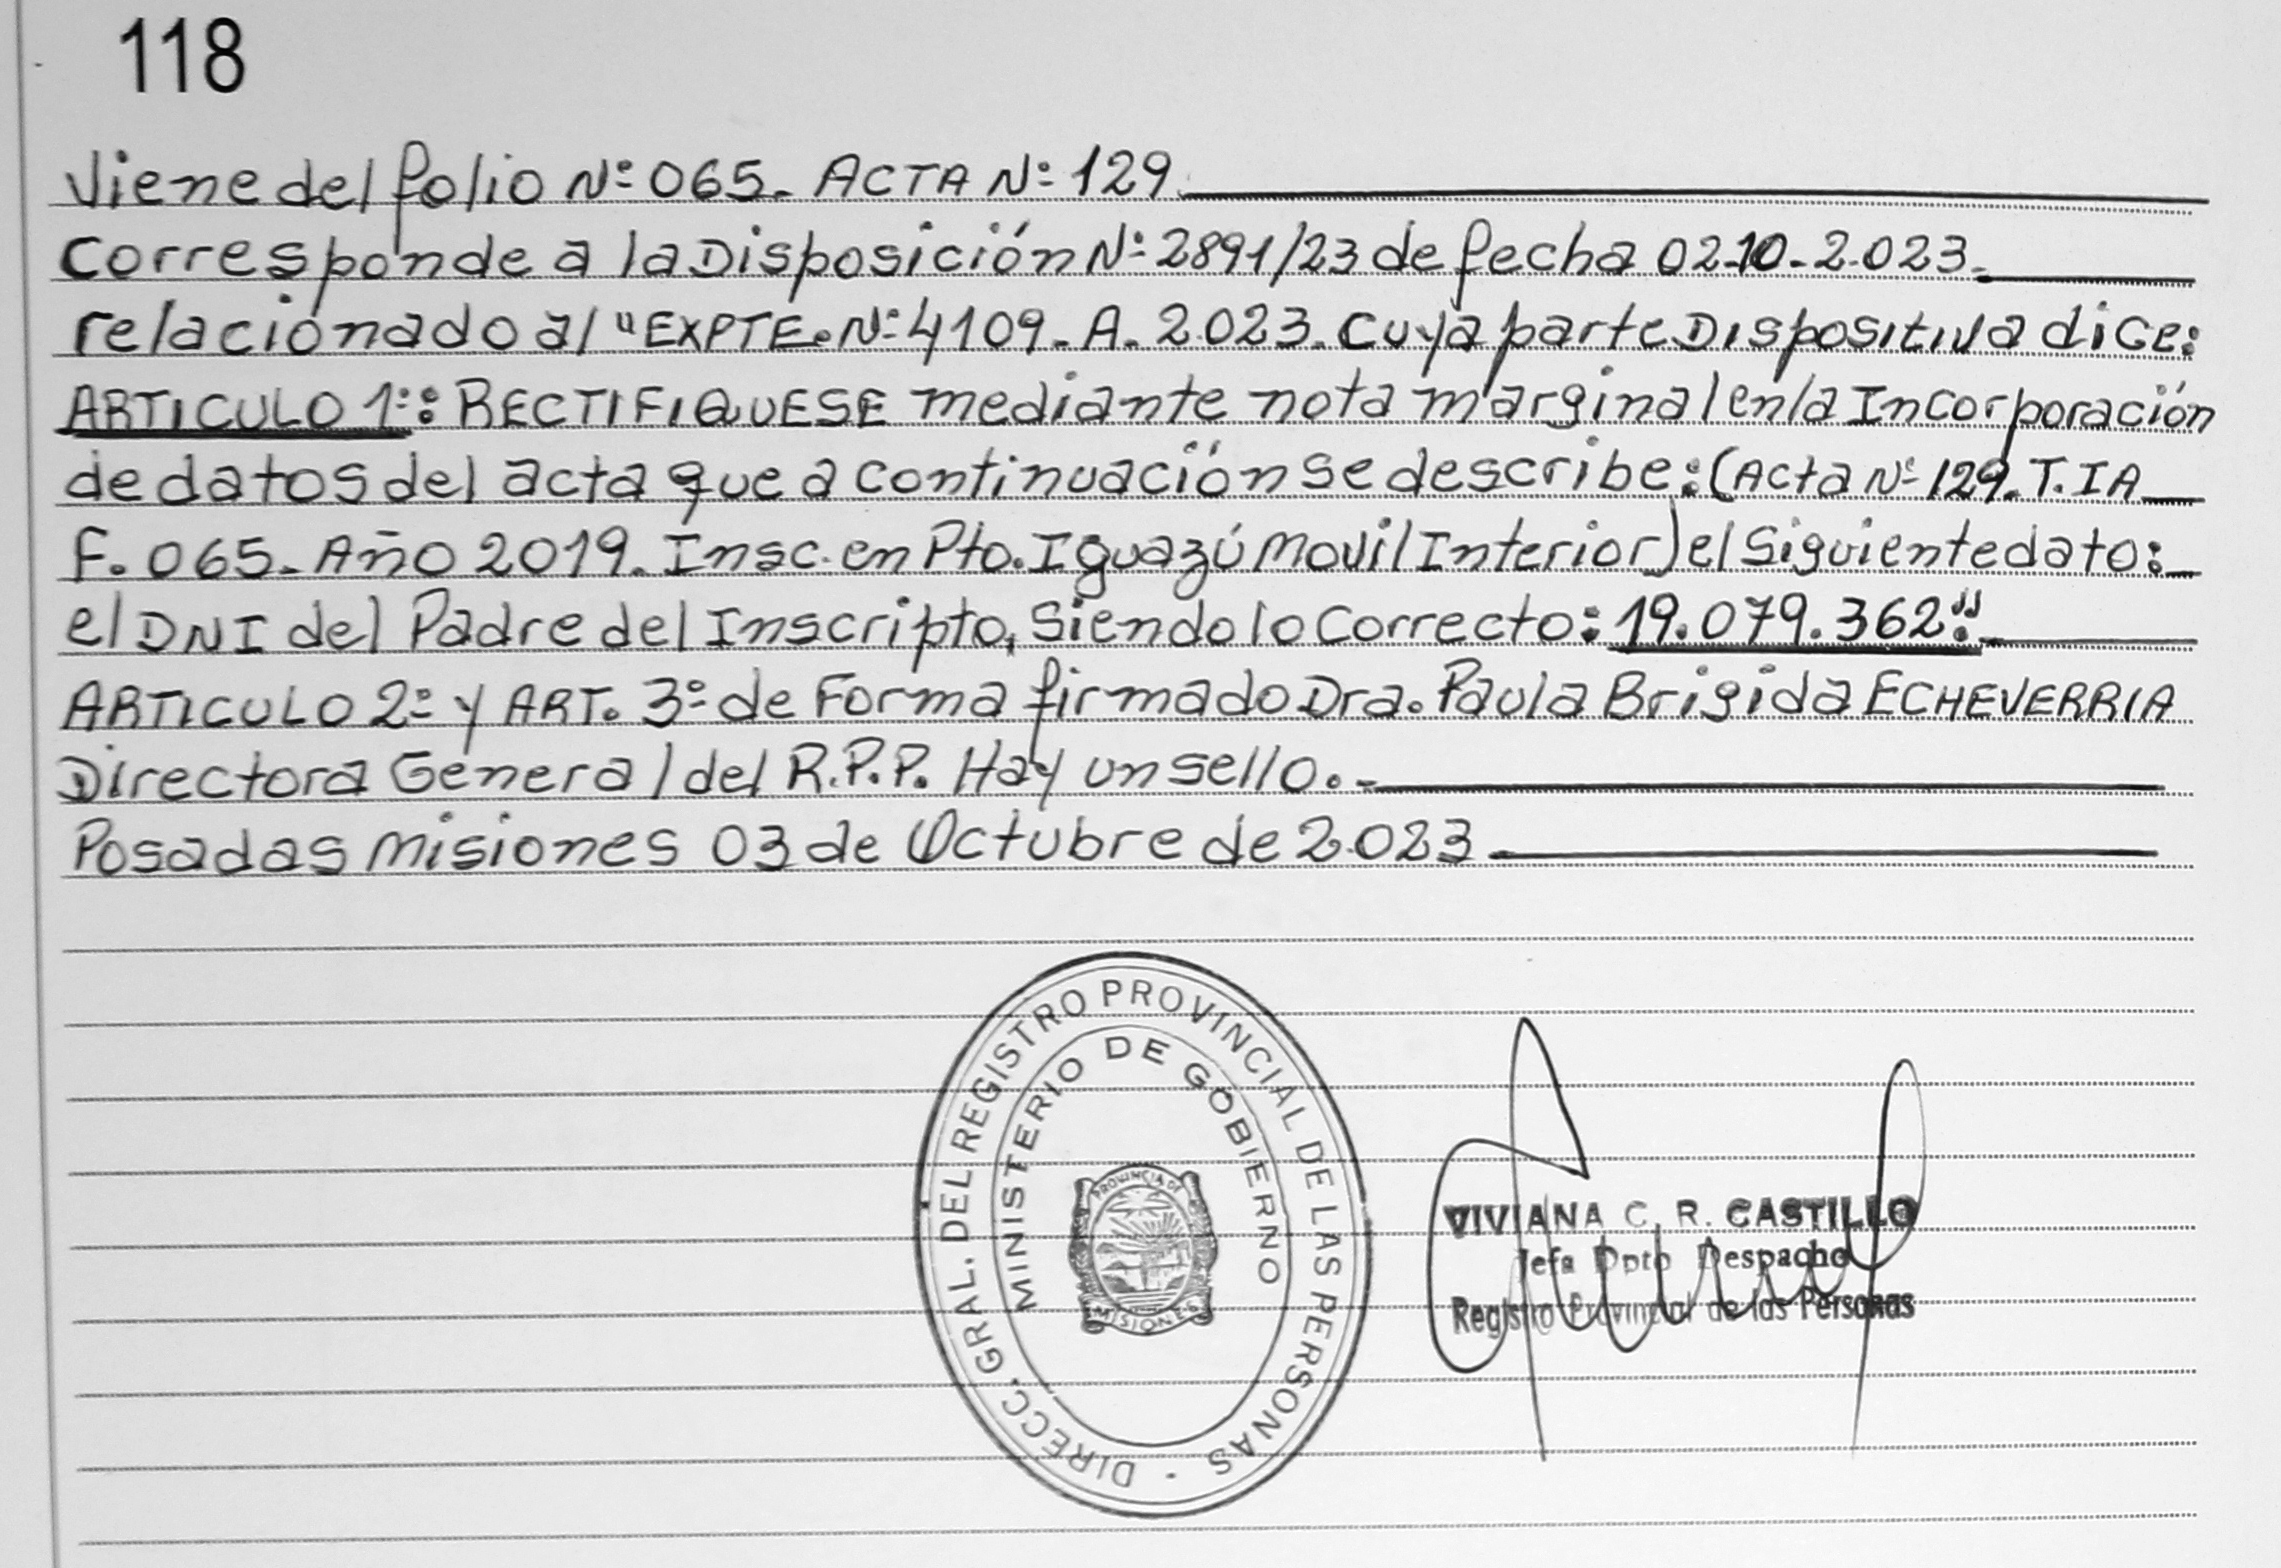 118
Viene del folio Nº 065. ACTA Nº 129.
Corresponde a la Disposición Nº 2891/23 de fecha 02-10-2.023.
relacionado al "EXPTE. Nº 4109. A. 2.023. Cuya parte Dispositiva dice:
ARTICULO 1º: RECTIFIQUESE mediante nota marginal en la Incorporación
de datos del acta que a continuación se describe: (Acta Nº 129. T. IA
F. 065. Año 2019. Insc. en Pto. Iguazú Movil Interior) el Siguiente dato:
el DNI del Padre del Inscripto, Siendo lo Correcto: 19.079.362".
ARTICULO 2º y ART. 3º de Forma firmado Dra. Paula Brigida ECHEVERRIA
Directora General del R.P.P. Hay un sello.-
Posadas Misiones 03 de Octubre de 2.023
DIRECC. GRAL. DEL REGISTRO PROVINCIAL DE LAS PERSONAS
MINISTERIO DE GOBIERNO
PROVINCIA DE
MISIONES
VIVIANA C. R. CASTILLO
Jefa Dpto Despacho
Registro Provincial de las Personas